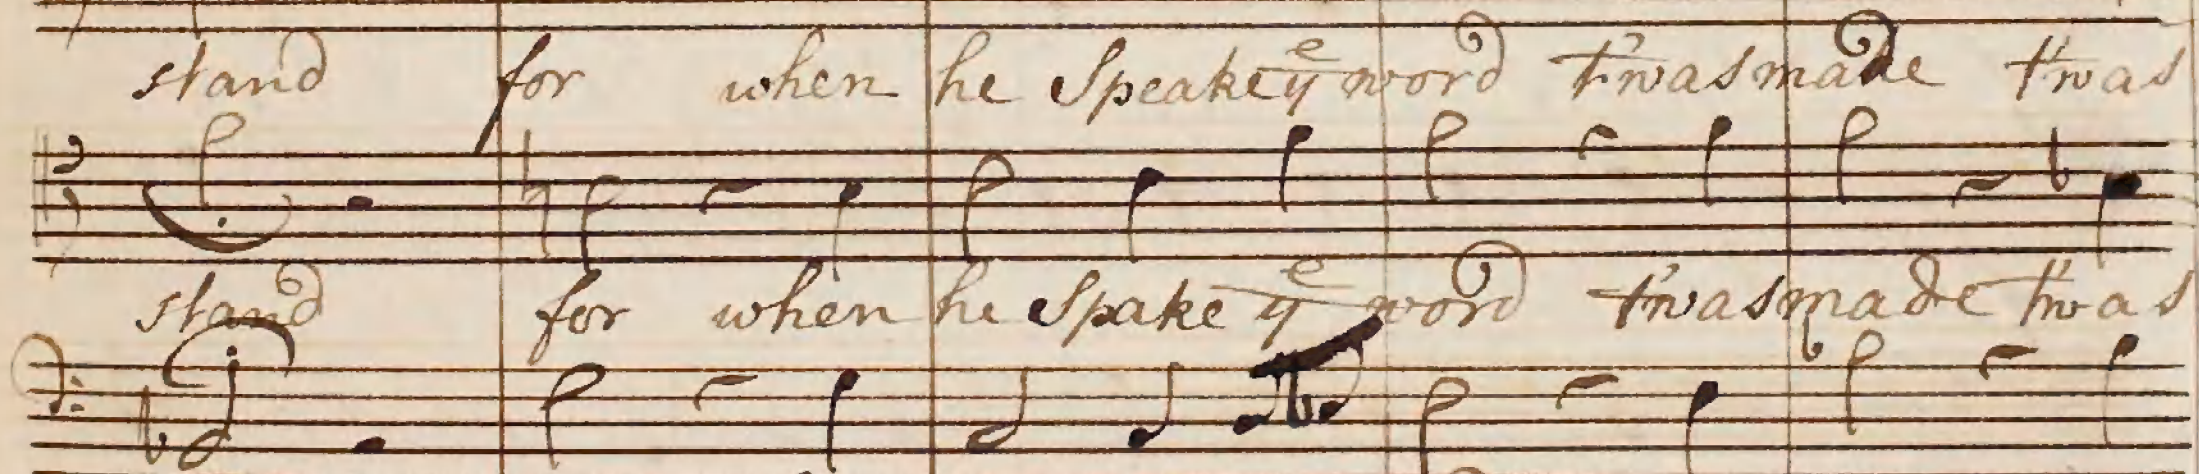 stand for when he Speake yͤ word t'was made t'was
stand for when he Spake yͤ word t'was made t'was